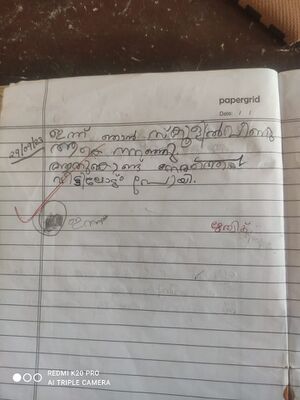 papergrid
Date: / /
29/07/23
ഇന്ന് ഞാൻ സ്കൂളിൽ വീണു
ആകെ നനഞ്ഞു
അതുകൊണ്ട് നേരത്തെ
വീട്ടിലോട്ട് പോയി.
ഇന്ന്
REDMI K20 PRO
AI TRIPLE CAMERA